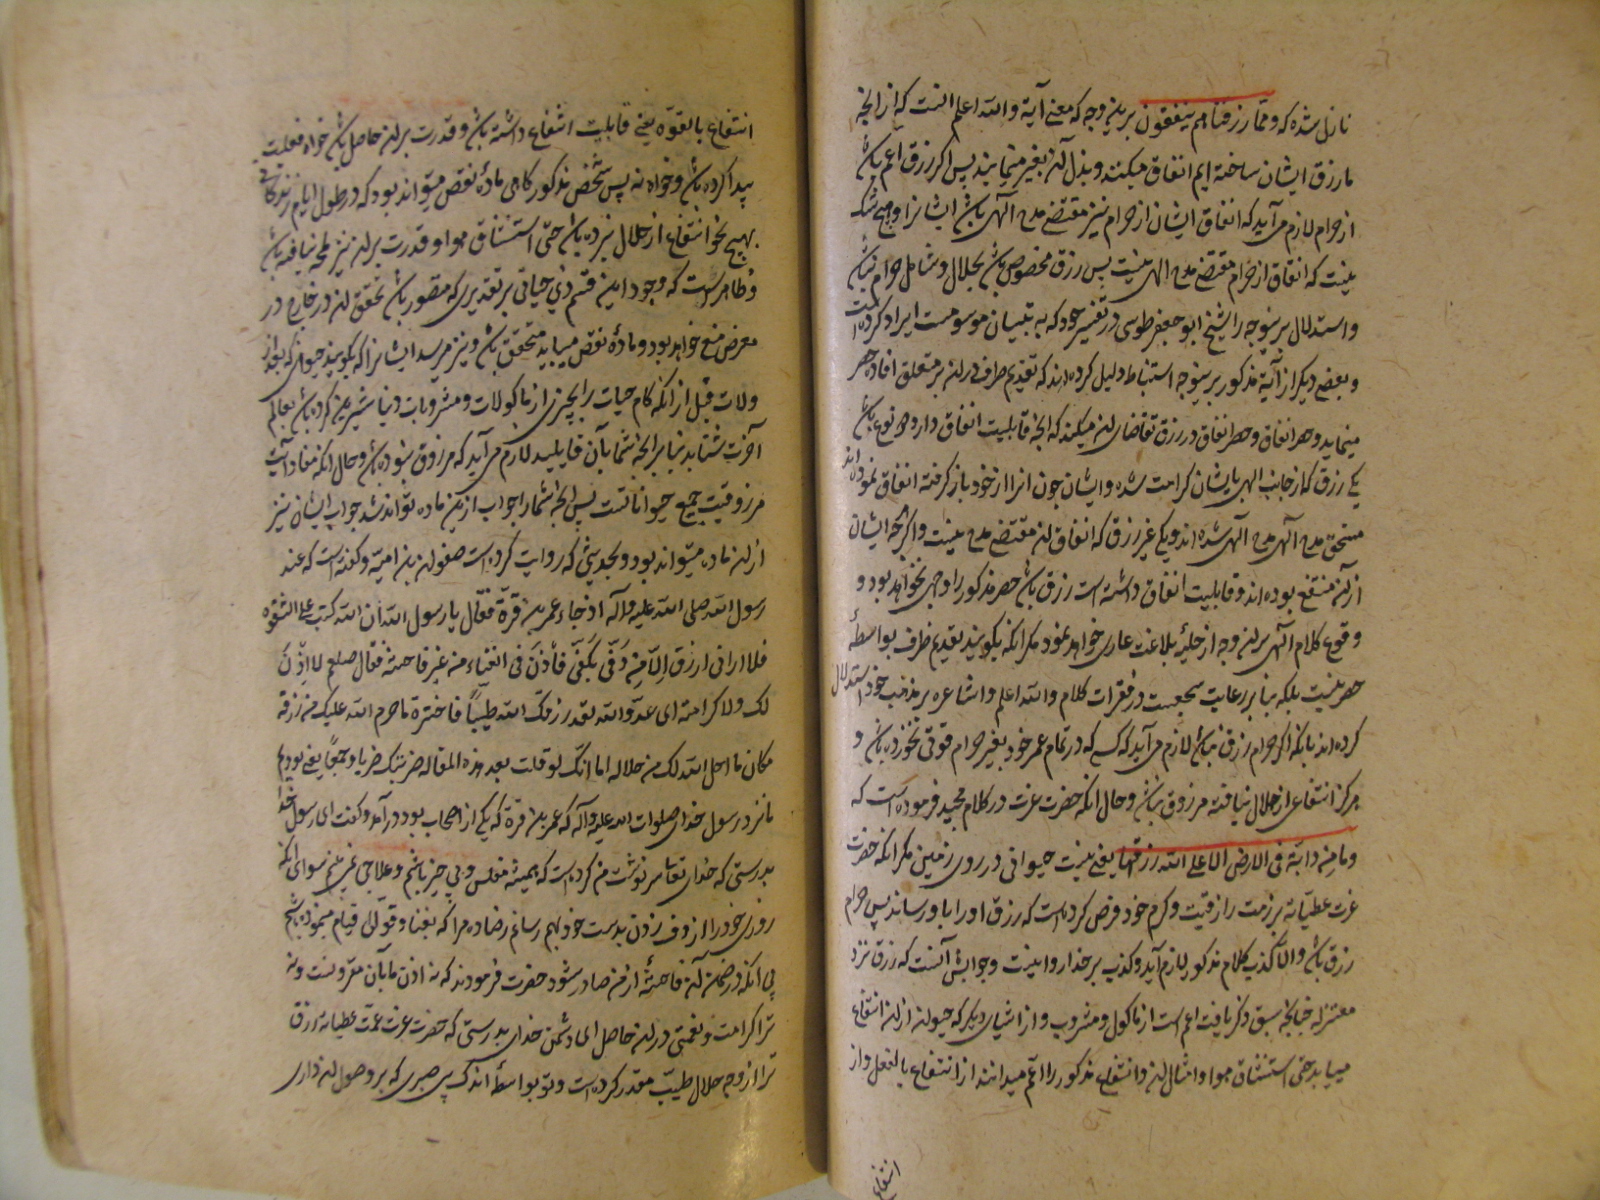 نازل شده که و ممّا رزقناهم ینفقون برینوجه که معنی آیة والله اعلم انست که از انچه
ما رزق ایشان ساخته ایم انفاق میکنند و بذل آن بغیر مینمایند پس اکر رزق اعم باشد
از حرام لازم می آید که انفاق ایشان از حرام نیز مقتضی مدح الهی باشد ایشانرا و هیچ شک
نیست که انفاق از حرام مقتضی مدح الهی نیست پس رزق مخصوص باشد بحلال و شامل حرام نباشد
و استدلال برینوجه را شیخ ابو جعفر طوسی در تفسیر خود که به تبیان موسومست ایراد کرده است
و بعضی دیکر از آیة مذکور برینوجه استنباط دلیل کرده اند که تقدیم ظرف در ان بر متعلق افاده حصر
مینماید و حصر انفاق در رزق تقاضای ان میکند که انچه قابلیت انفاق دارد دو نوع باشد
یکی رزق که از جانب الهی بایشان کرامت شده و ایشان چون انرا از خود باز کرفته انفاق نموده اند
مستحق مدح الهی شده اند و یکی غیر رزق که انفاق ان مقتضی مدح نیست و اکرچه ایشان
از آن منتفع بوده اند و قابلیت انفاق داشته است رزق باشد حصر مذکور را وجهی نخواهد بود و
وقوع کلام الهی بر ان وجه از حلیهٔ بلاغت عاری خواهد نمود مکر انکه بکویند تقدیم ظرف بواسطهٔ
حصر نیست بلکه بنا بر رعایت سجعست در فقرات کلام والله اعلم و اشاعره بر مذهب خود استدلال
کرده اند بانکه اکر حرام رزق نباشد لازم می آید که کسی که در تمام عمر خود بغیر حرام قوتی نخورده باشد و
هرکز انتفاعی از حلال نیافته مرزوق نباشد و حال انکه حضرت عزت در کلام مجید فرموده است که
و ما من دابّة فی الارض الا علی الله رزقها یعنی نیست حیوانی در روی زمین مکر انکه حضرت
عزت عطیاته بر ذمت رازقیت و کرم خود فرض کرده است که رزق او را باو رساند پس حرام
رزق باشد و الا کذب کلام مذکور لازم آید و کذب بر خدا روا نیست و جوابش آنست که رزق نزد
معتزله چنانچه سبق ذکر یافت اعم است از ماکول و مشروب و از اشیای دیکر که حیوان از ان انتفاع
میابد حتی استنشاق هوا و امثال ان و انتفاع مذکور را اعم میدانند از انتفاع بالفعل و از
انتفاع
انتفاع بالقوه یعنی قابلیت انتفاع داشته باشد و قدرت بر ان حاصل باشد خواه فعلیت
پیدا کرده باشد و خواه نه پس شخص مذکور کاهی مادهٔ نقض میتواند بود که در طول ایام زندکانی
بهیچ نحو انتفاع از حلال نبرده باشد حتی استنشاق هوا و قدرت بر ان نیز لمحه نیافته باشد
و ظاهر است که وجود این قسم ذی حیاتی بر تقدیری که متصور باشد تحقق ان در خارج در
معرض منع خواهد بود و مادهٔ نقض میباید متحقق باشد و نیز میرسد ایشانرا که بکویند حیوانی که بعد از
ولادت قبل از انکه کام حیات را بچیزی از ماکولات و مشروبات دنیا شیرین کرده باشد بعالم
آخرت شتابد بنا بر انچه شما بآن قایلید لازم می آید که مرزوق نبوده باشد و حال انکه مفاد آیت
مرزوقیت جمیع حیواناتست پس انچه شما را جواب ازین ماده تواند شد جواب ایشان نیز
از ان ماده میتواند بود و بحدیثی که روایت کرده است صفوان بن امیّه و کفته است که عند
رسول الله صلی الله علیه و آله اذ جاء عمر بن قرّة فقال یا رسول الله ان الله کتب علی الشقوه
فلا ارانی ارزق الّا من دفّی بکفّی فأذن فی الغناء من غیر فاحشة فقال صلعم لا اذن
لک ولا کرامة ای عدوّ الله لقد رزقک الله طیباً فاخترت ما حرم الله علیک من رزقه
مکان ما احل الله لک من حلاله اما انّک لو قلت بعد هذه المقاله ضربتک ضربا وجیعاً یعنی بودیم
ما نزد رسول خدا صلوات الله علیه و آله که عمر بن قرة که یکی از اصحاب بود در آمد و کفت ای رسول خدا
بدرستی که خدای تعالی سرنوشت من کرده است که همیشه مفلس و بی چیز باشم و علاجی نمی بینم سوای انکه
روزی خود را از دف زدن بدست خود بهم رسانم رضا ده مرا که بغنا و قوّالی قیام مینموده باشم
بی انکه در ضمن آن فاحشهٔ از من صادر شود حضرت فرمودند که نه اذن ما بآن مقرونست و نه
ترا کرامت و نعمتی در ان حاصل ای دشمن خدای بدرستی که حضرت عزت عمّت عطیاته رزق
ترا از وجه حلال طیّب مقدر کرده است و تو بواسطهٔ اندک بی صبری که بر وصول ان داری